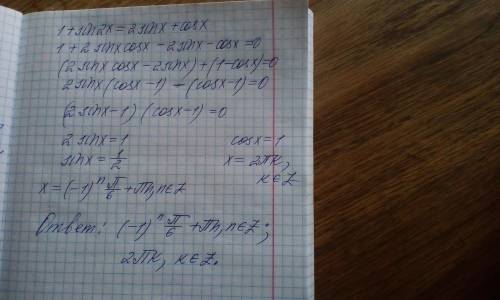 1 + sin2x = 2sinx + cosx
1 + 2sinxcosx - 2sinx - cosx = 0
(2sinxcosx - 2sinx) + (1 - cosx) = 0
2sinx(cosx - 1) - (cosx - 1) = 0
(2sinx - 1) (cosx - 1) = 0
2sinx = 1 cosx = 1
sinx = 1/2 x = 2πk,
x = (-1)^n π/6 + πn, n∈Z k∈Z
Ответ: (-1)^n π/6 + πn, n∈Z;
2πk, k∈Z.